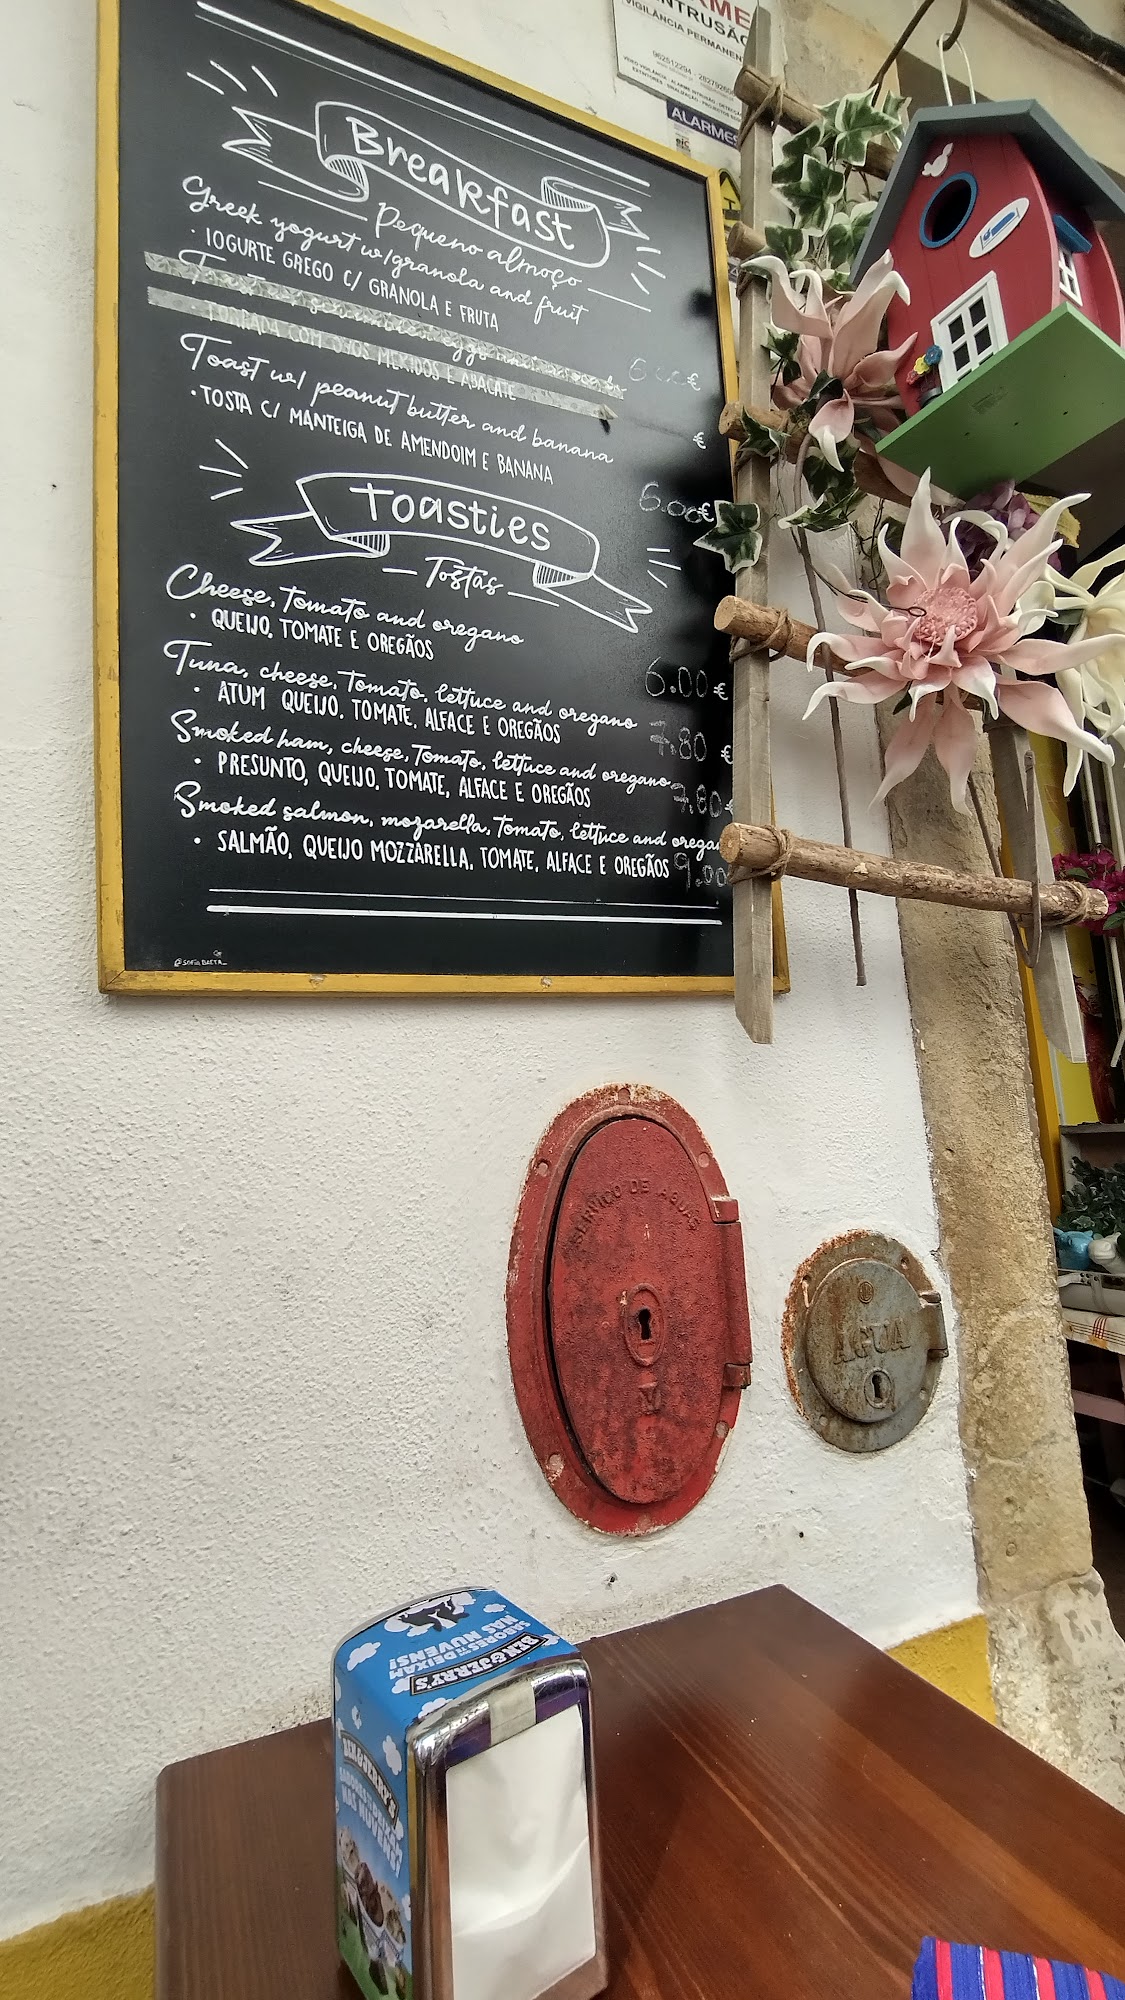 INTRUSÃO
VIGILÂNCIA PERMANEN
962512294 - 28279260
ALARMES
Breakfast
Pequeno almoço
Greek yogurt w/granola and fruit
· IOGURTE GREGO C/ GRANOLA E FRUTA
6.00€
TORRADA COM OVOS MEXIDOS E ABACATE
€
Toast w/ peanut butter and banana
· TOSTA C/ MANTEIGA DE AMENDOIM E BANANA
6.00€
Toasties
Tostas
Cheese, Tomato and oregano
· QUEIJO, TOMATE E OREGÃOS
6.00€
Tuna, cheese, Tomato, lettuce and oregano
· ATUM QUEIJO, TOMATE, ALFACE E OREGÃOS
7.80€
Smoked ham, cheese, Tomato, lettuce and oregano
· PRESUNTO, QUEIJO, TOMATE, ALFACE E OREGÃOS
7.80€
Smoked salmon, mozarella, Tomato, lettuce and orega
· SALMÃO, QUEIJO MOZZARELLA, TOMATE, ALFACE E OREGÃOS
9.00
SERVIÇO DE AGUAS
AGUA
BEN & JERRY'S
SABORES QUE TE
DEIXAM
NAS NUVENS!
BEN & JERRY'S
NAS NUVENS!